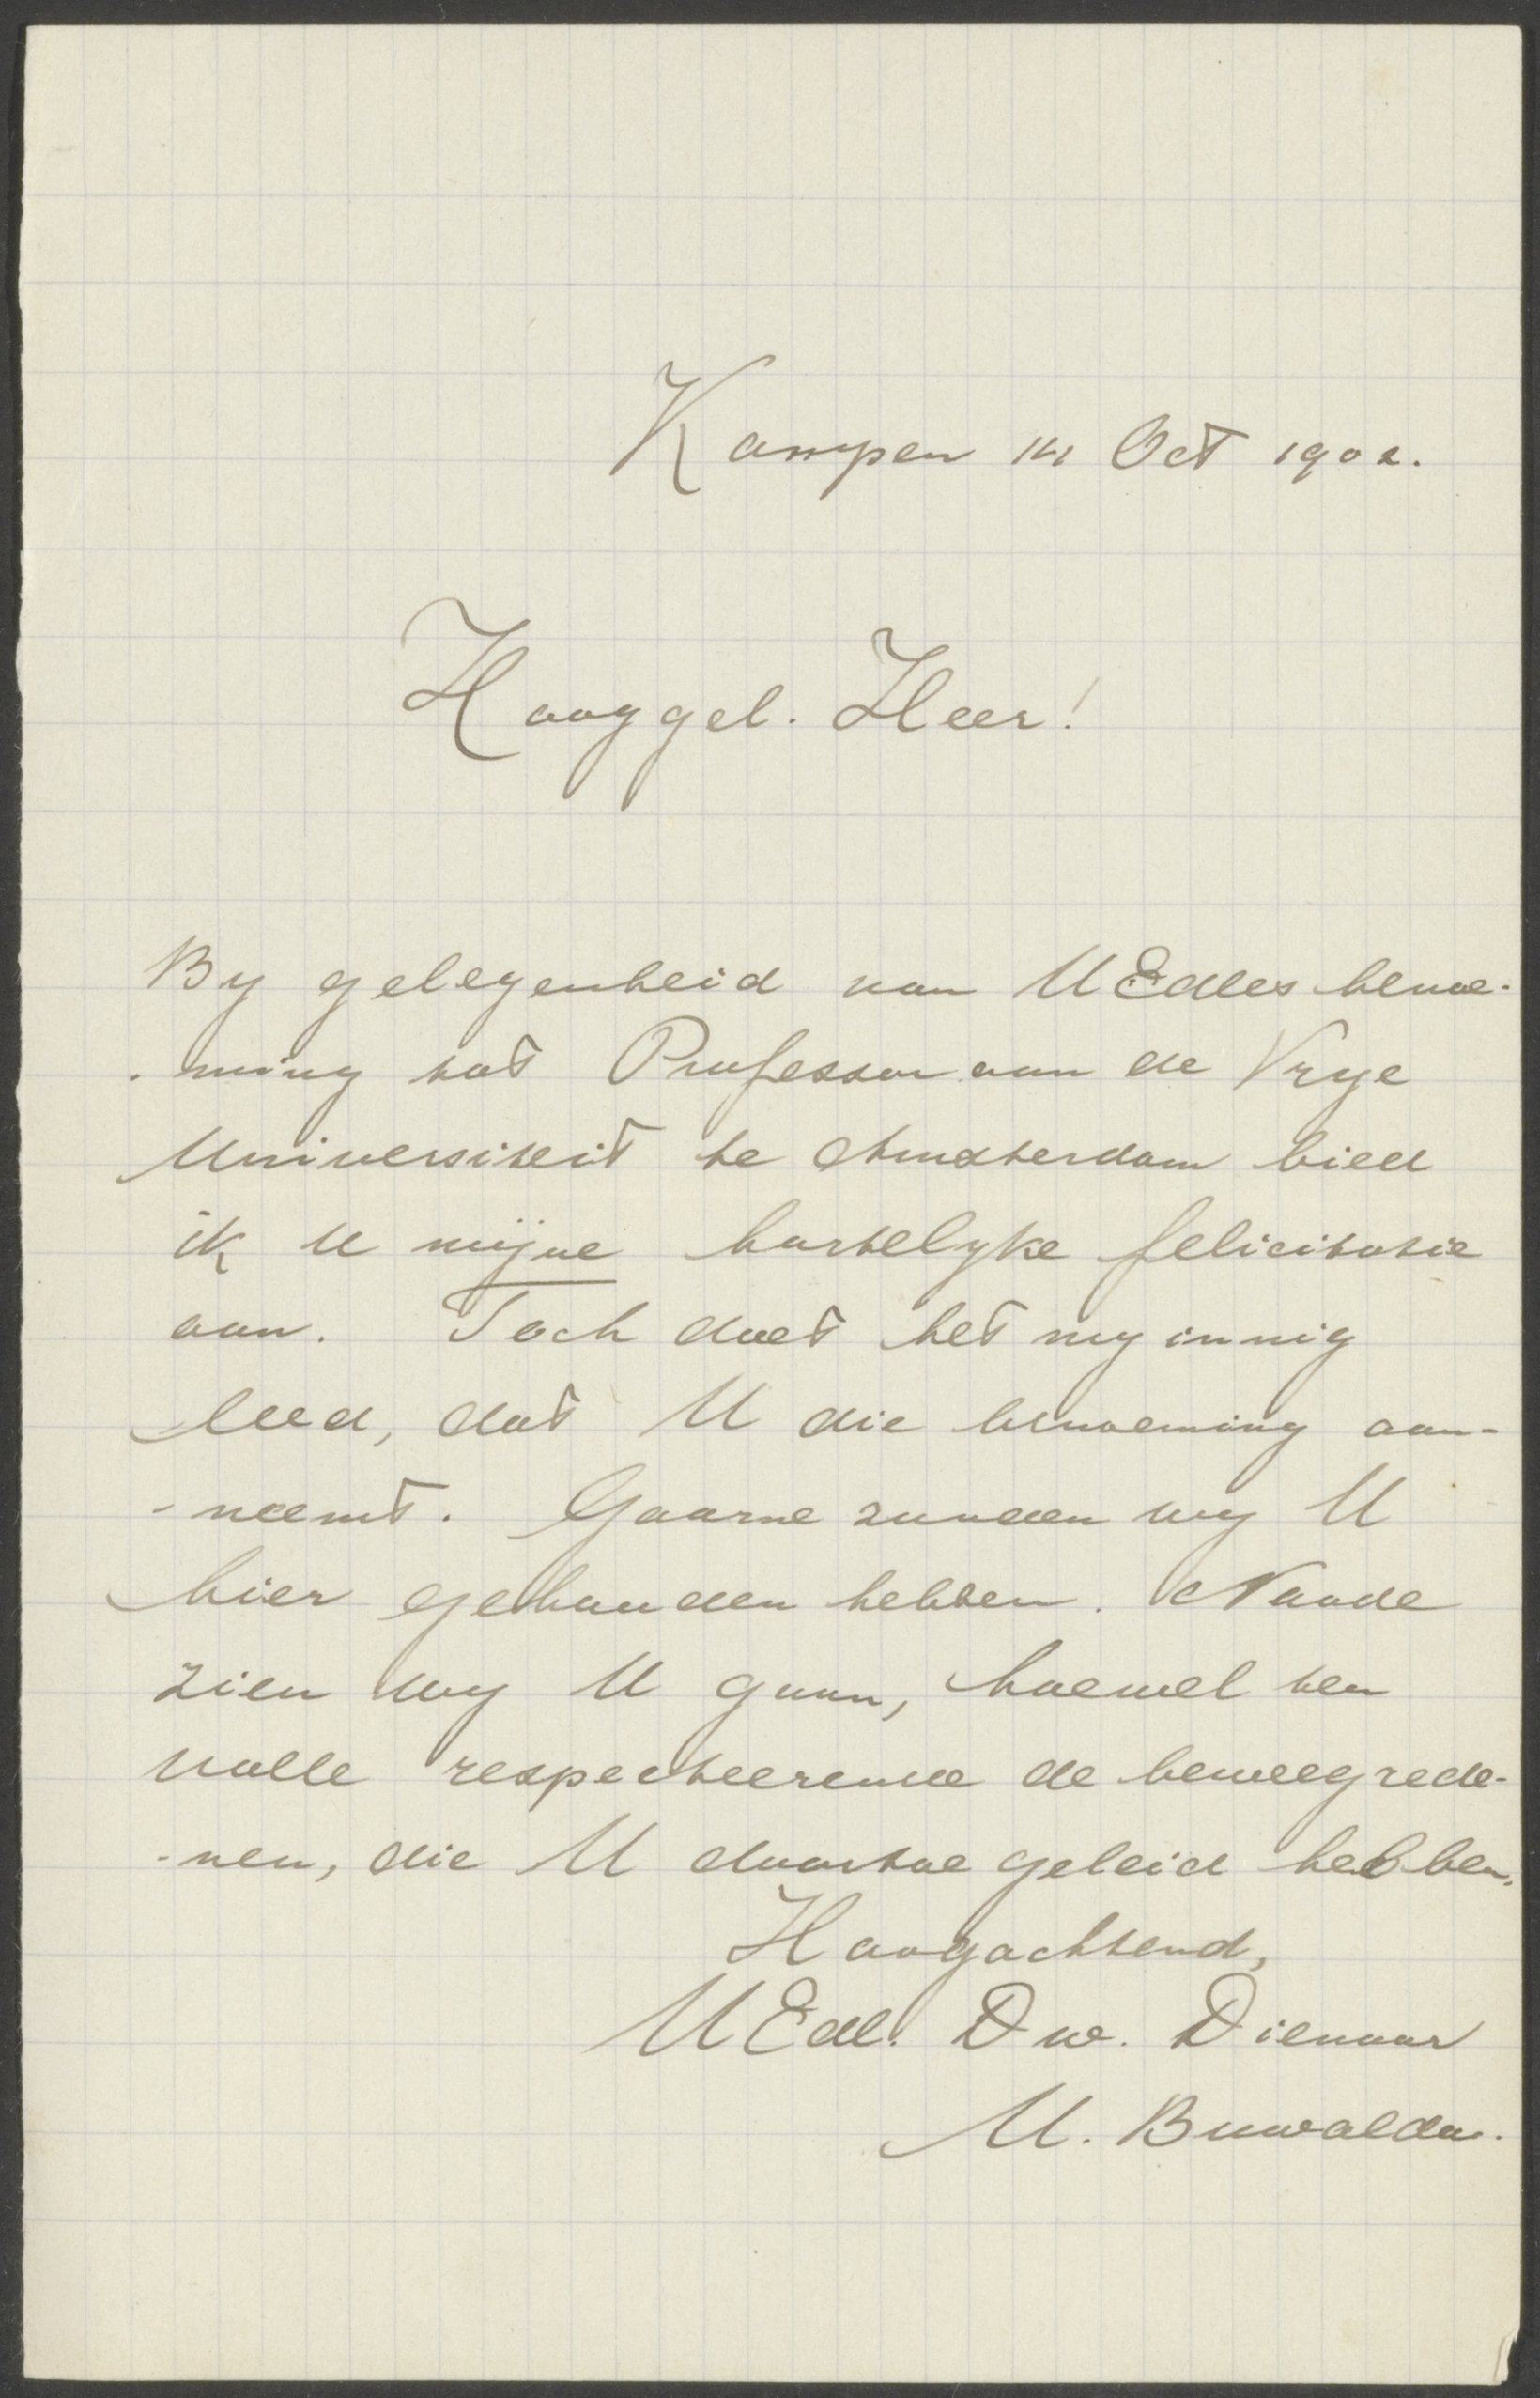 Kampen 14 Oct 1902.
Hooggel. Heer!
By gelegenheid van UEdles benoe-
-ming tot Professor aan de Vrye
Universiteit te Amsterdam bied
ik U mijne hartelyke felicitatie
aan. Toch doet het my innig
leed, dat U die benoeming aan-
-neemt. Gaarne zouden wy U
hier gehouden hebben. Noode
zien wy U gaan, hoewel ten
volle respecteerende de beweegrede-
-nen, die U daartoe geleid hebben.
Hoogachtend,
UEdl. Dw. Dienaar
M. Buwalda.